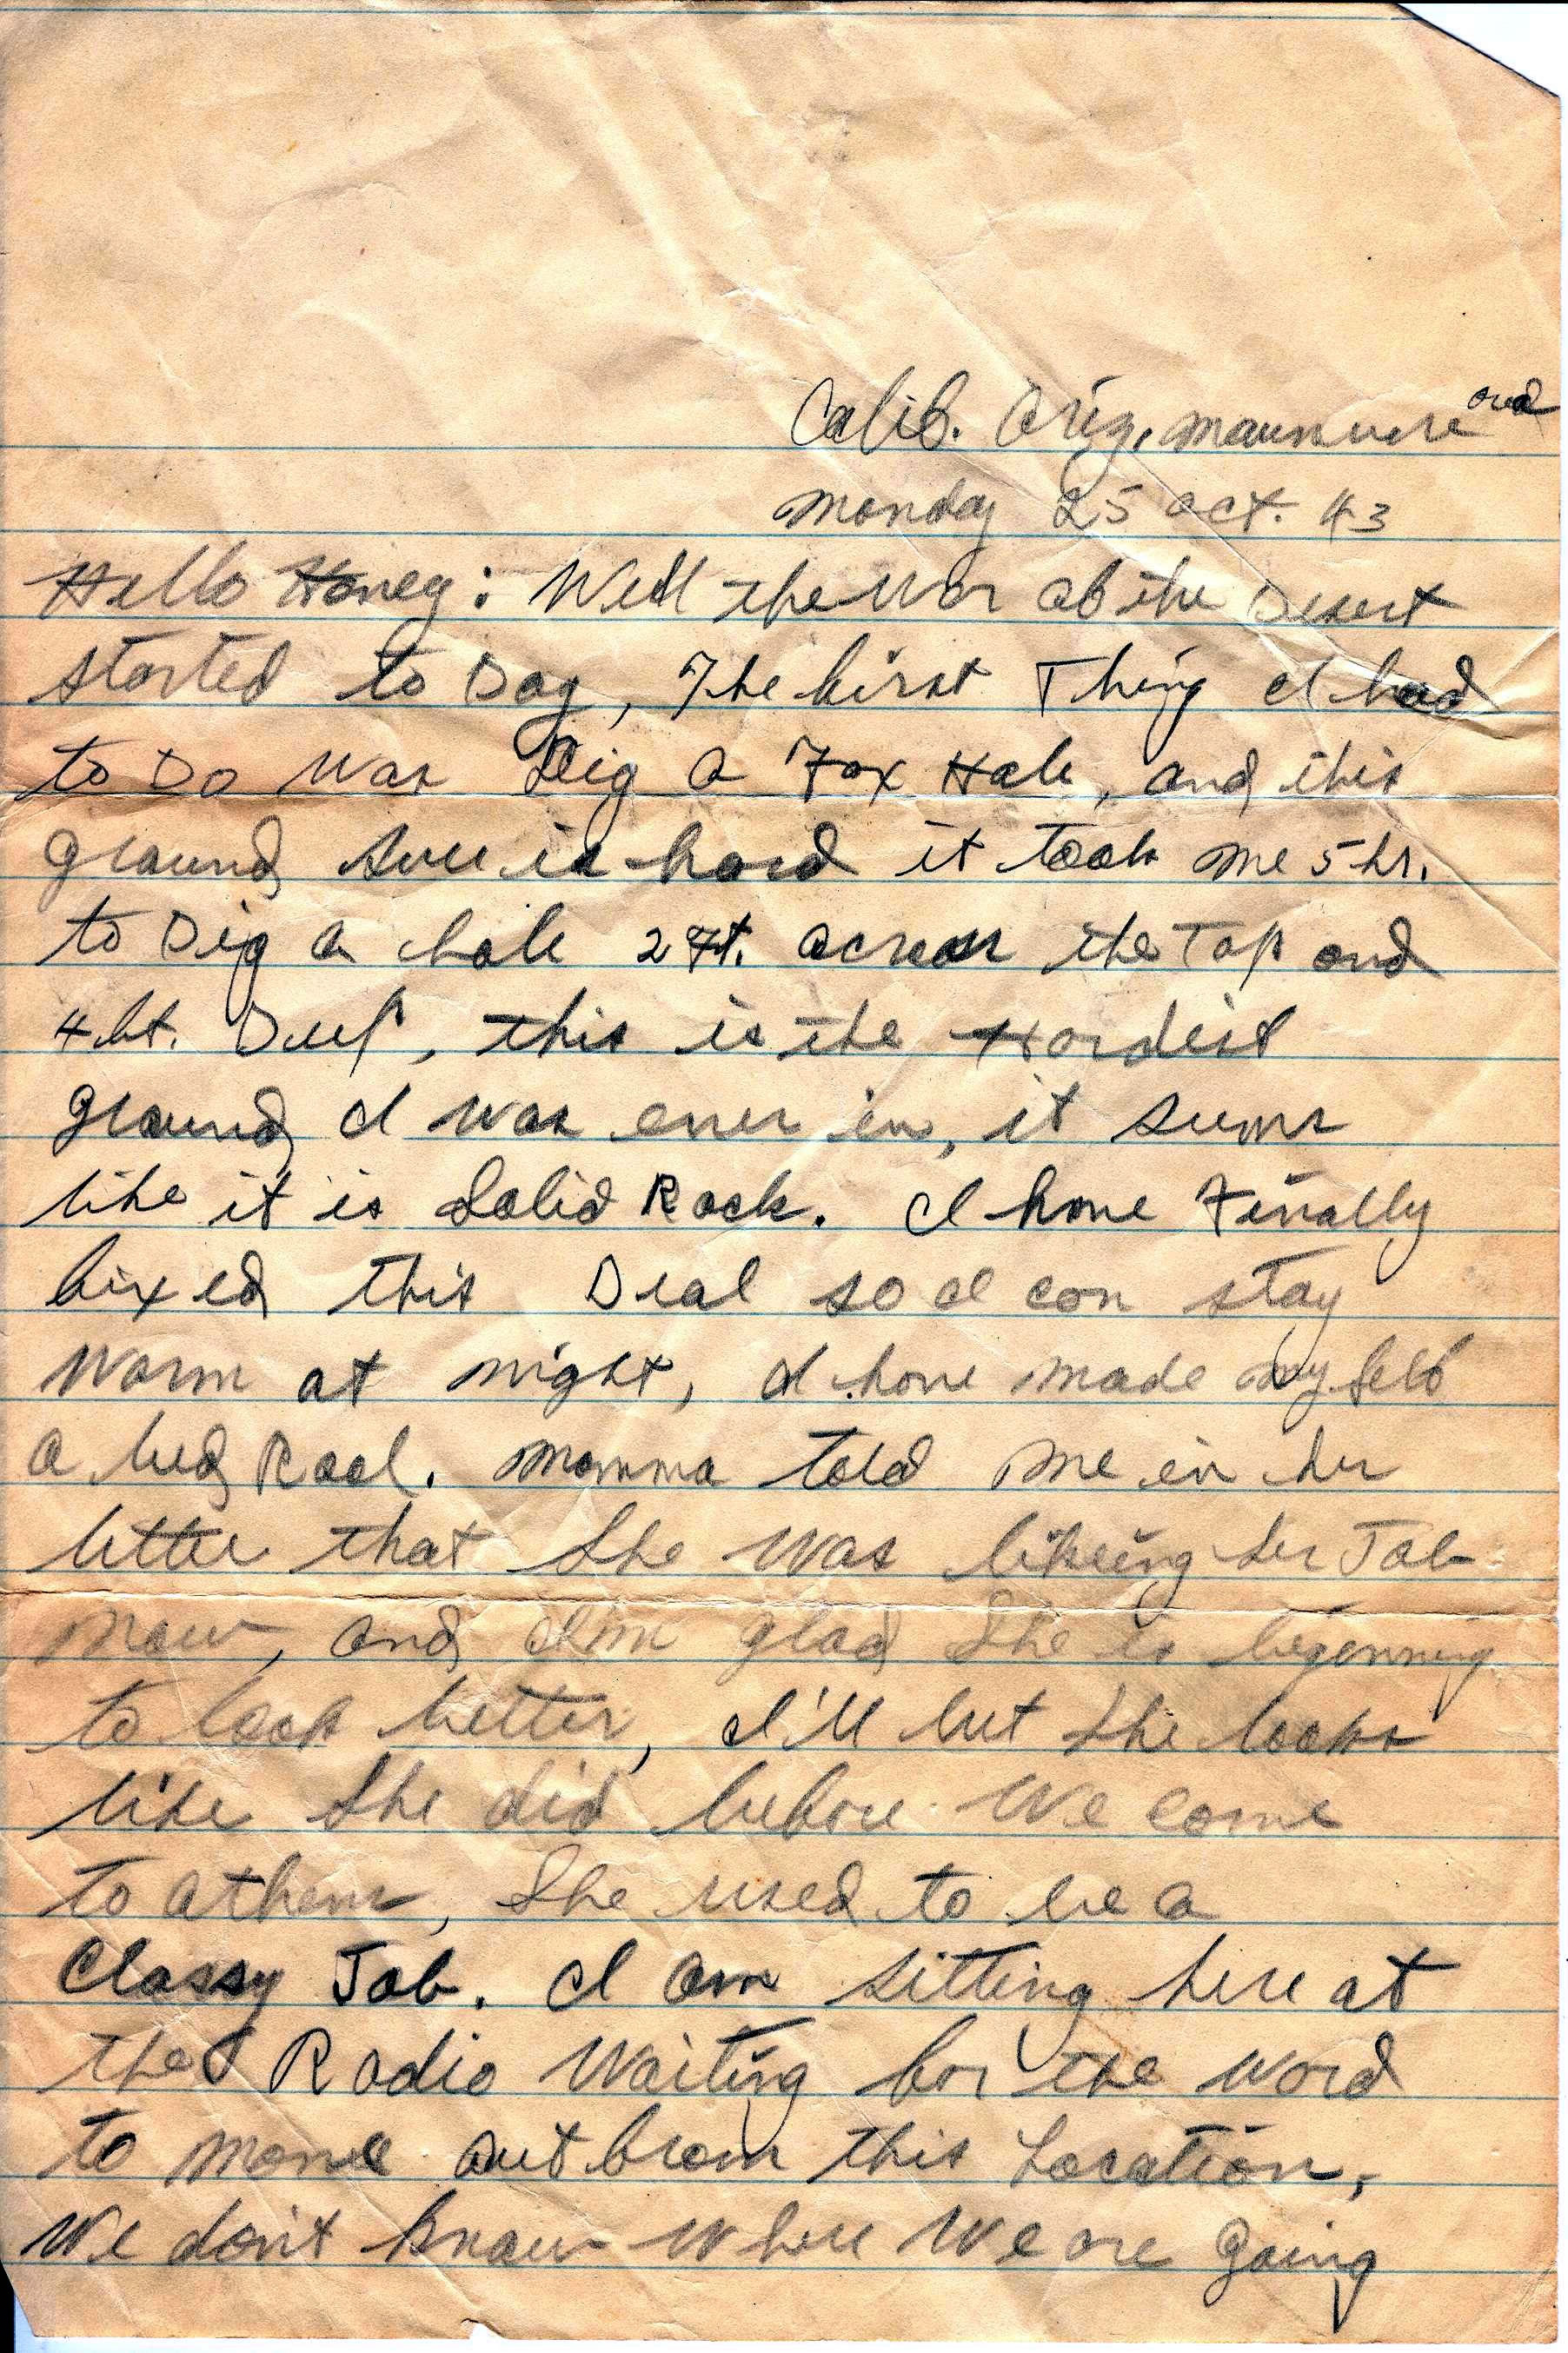 Calif. Ariz. Maunuvere and
Monday 25 Oct. 43
Hello Honey: Well the War of the Desert
started to Day, The first Thing I had
to Do was Dig a Fox Hole, and this
ground sure is hard it took me 5 hr.
to Dig a hole 2 Ft. across the Top and
4 ft. Deep, this is the Hardest
ground I was ever in, it seems
like it is Solid Rock. I have Finally
fixed this Deal so I can stay
warm at night, I have made myself
a bed Rool. Momma told me in her
letter that She was likeing her Job
now, and I'm glad She is begenning
to look better, I'll bet She looks
like She did before We come
to Athens, She used to be a
Classy Job. I am sitting here at
the Radio Waiting for the word
to move out from this Location,
We don't know where We are Going